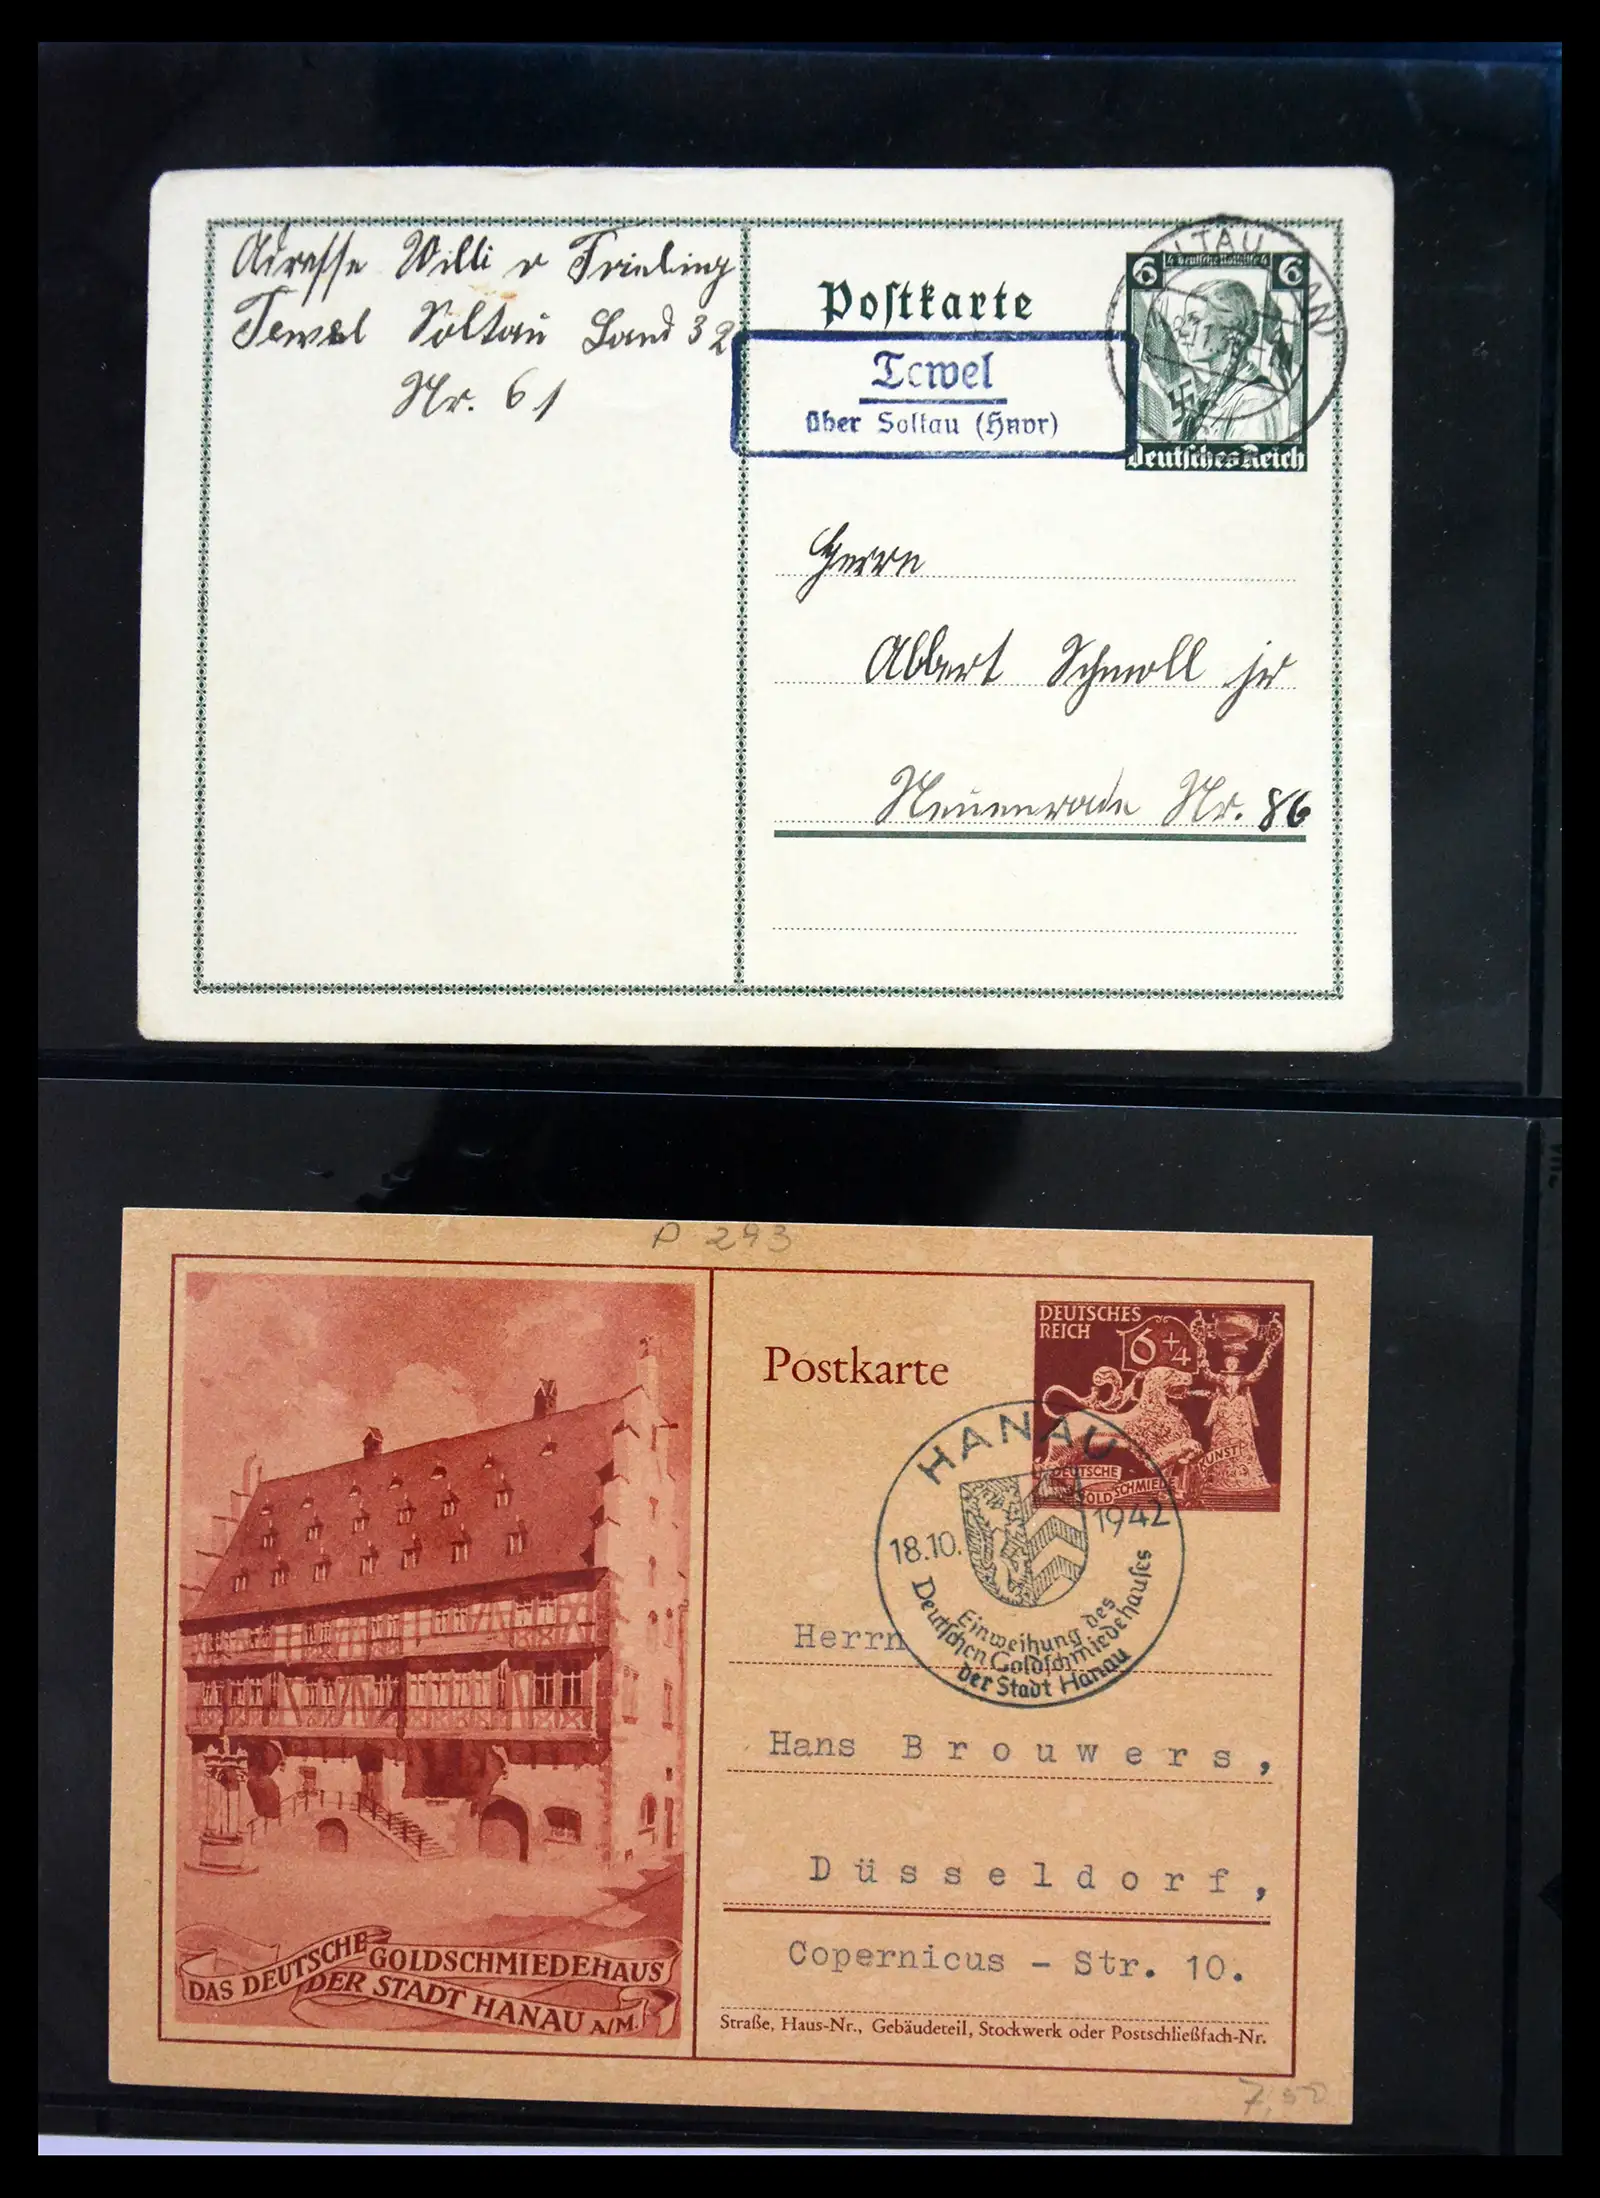 Adresse Willi v Frieling
Tewel Soltau Land 32
Nr. 61
Postkarte
6 4 Deutsche Nothilfe 4 6
Deutsches Reich
Tewel
über Soltau (Hnvr)
Herrn
Albert Schmoll jr
Neuenrade Nr. 86
P 293
DEUTSCHES
REICH
6+4
DEUTSCHE
GOLDSCHMIEDE
KUNST
Postkarte
HANAU
18.10. 1942
Einweihung des
Deutschen Goldschmiedehauses
der Stadt Hanau
Herrn
Hans Brouwers,
Düsseldorf,
Copernicus - Str. 10.
Straße, Haus-Nr., Gebäudeteil, Stockwerk oder Postschließfach-Nr.
DAS DEUTSCHE GOLDSCHMIEDEHAUS
DER STADT HANAU A/M.
7,50